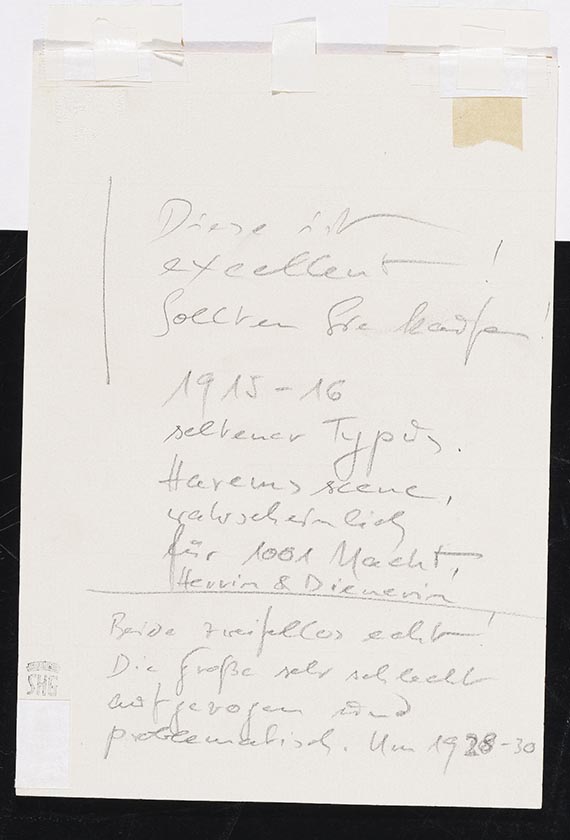 Diese ist
excellent!
Sollten Sie kaufen!
1915-16
seltener Typus.
Haremsscene,
wahrscheinlich
für 1001 Nacht,
Herrin & Dienerin
Beide zweifellos echt!
Die große sehr schlecht
aufgezogen und
problematisch. Um 1928-30
SHG